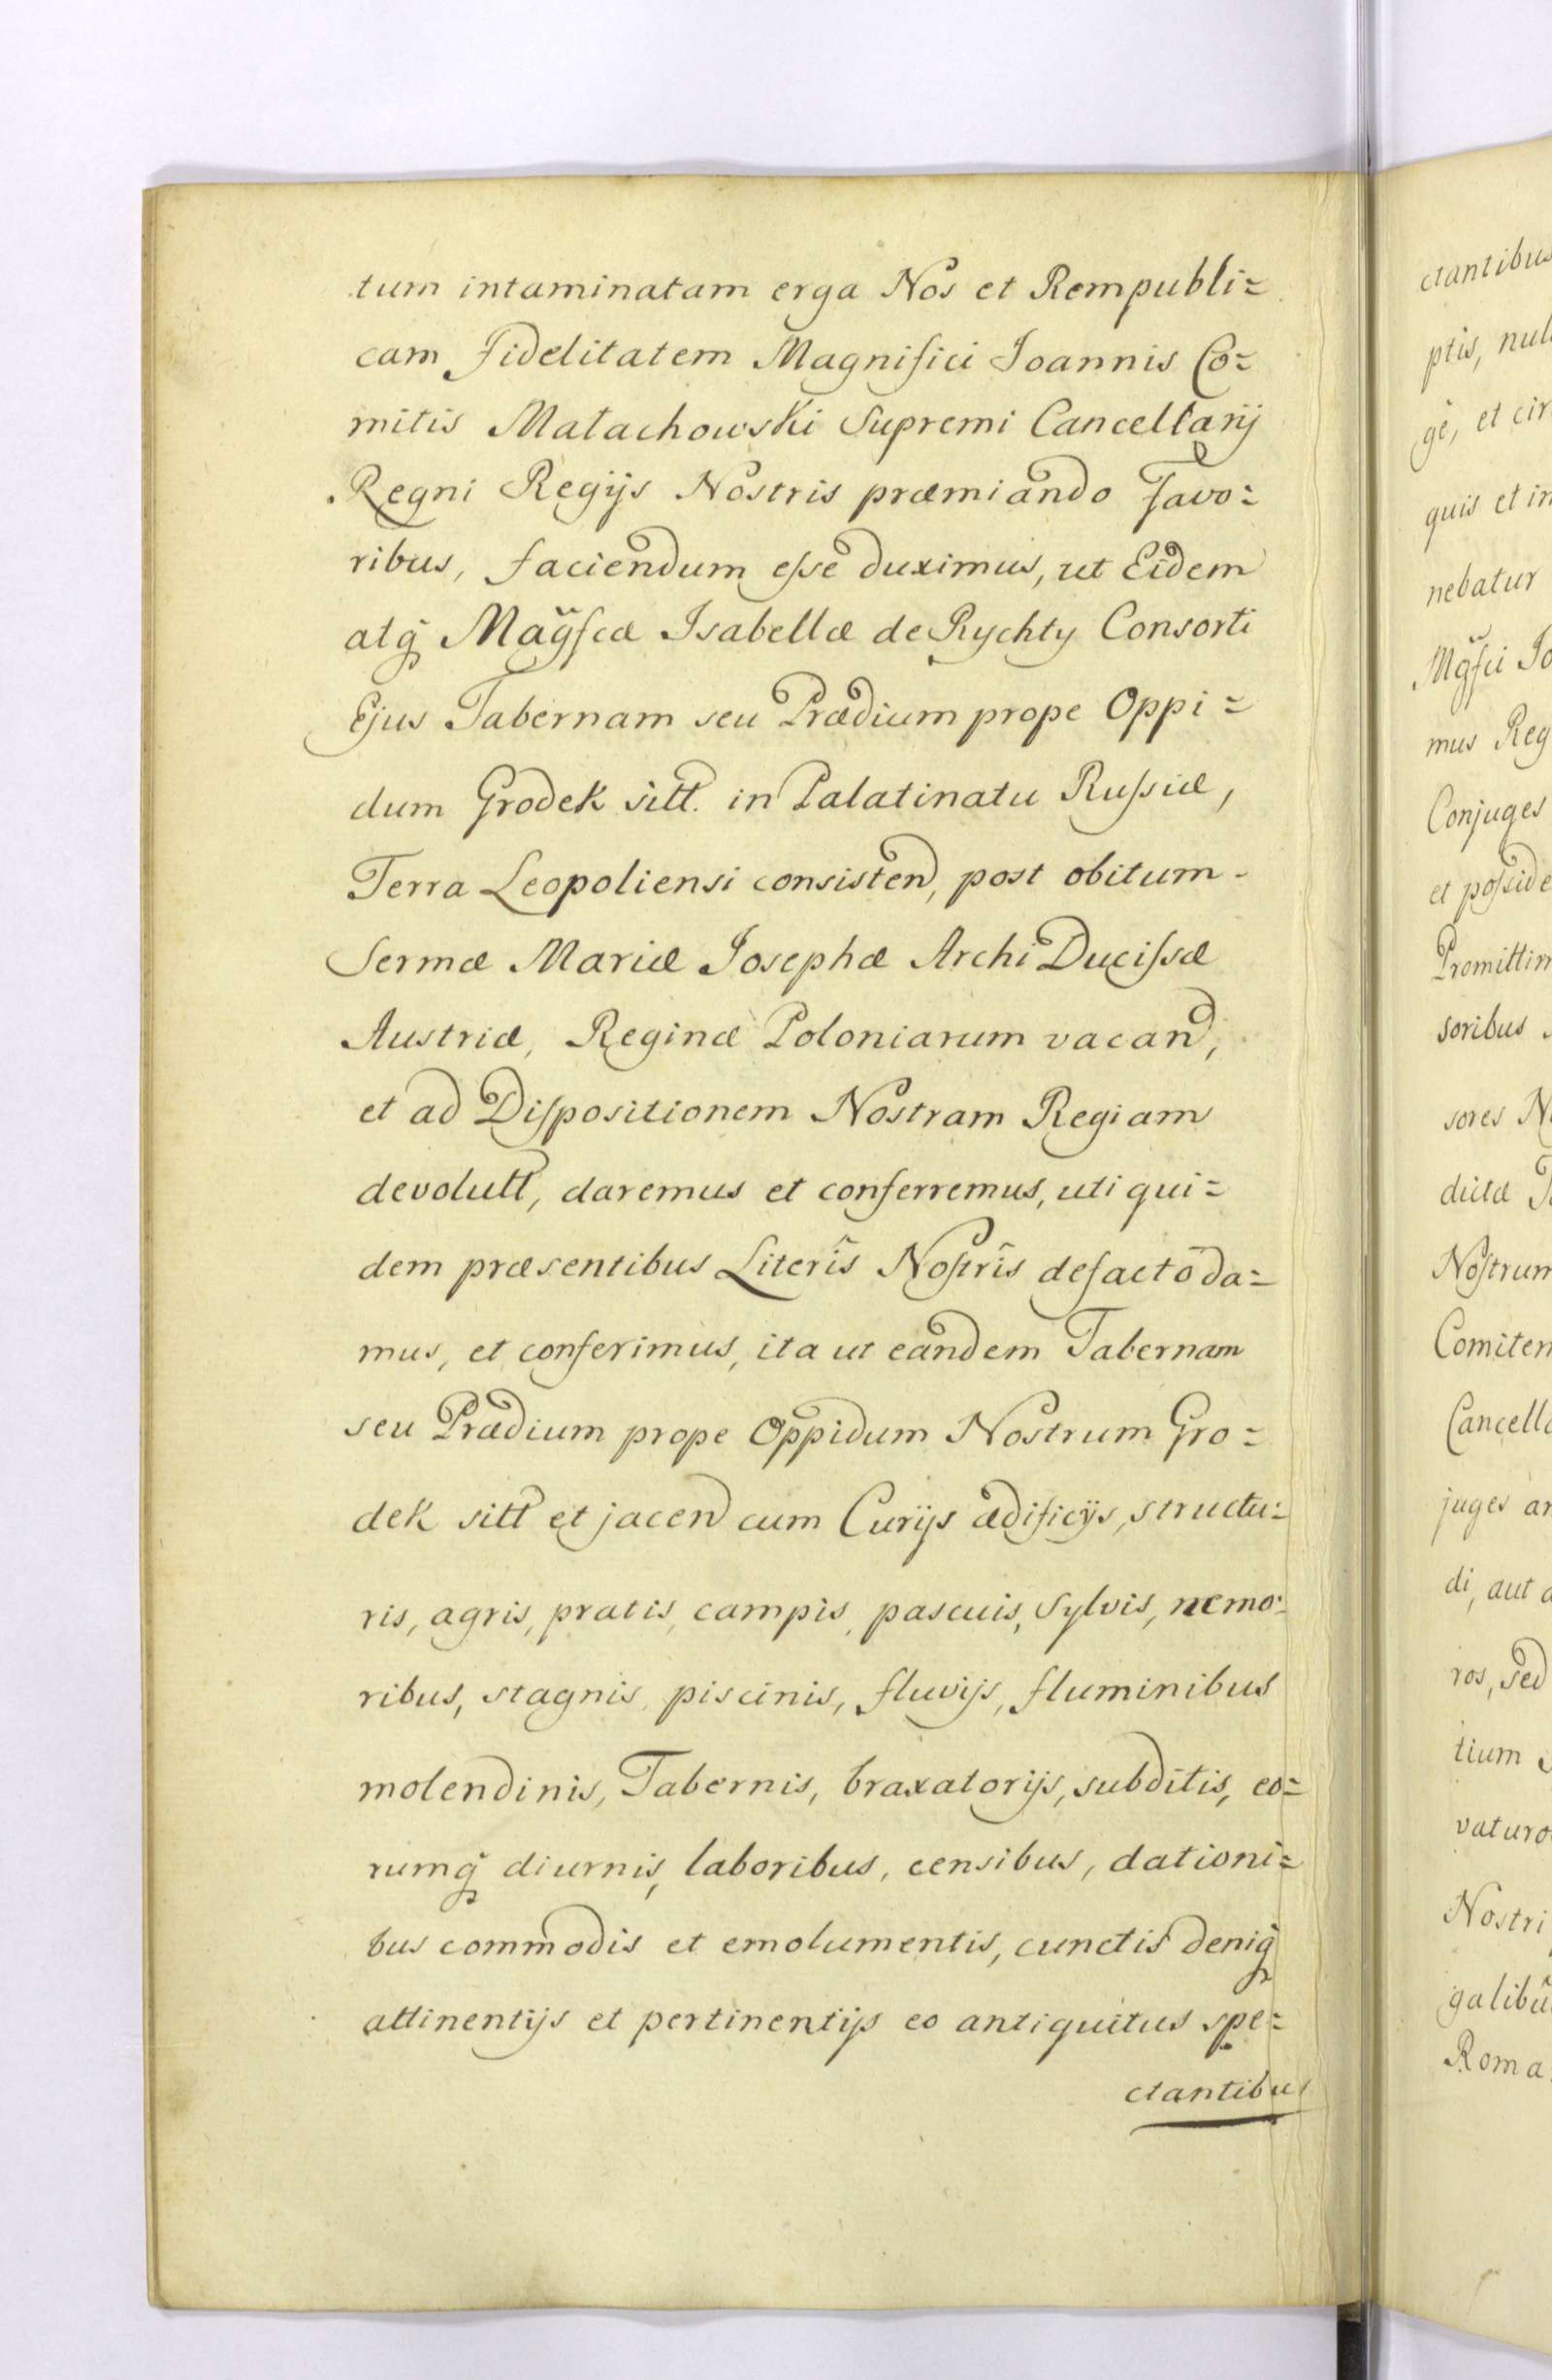 tum intaminatam erga Nos et Rempubli=
cam Fidelitatem Magnifici Joannis Co=
mitis Małachowski Supremi Cancellarij
Regni Regijs Nostris præmiando Favo=
ribus, faciendum esse duximus, ut Eidem
atq̃ Mag̃fcæ Isabellæ de Rychty Consorti
Ejus Tabernam seu Prædium prope Oppi=
dum Grodek sitt. in Palatinatu Russiæ,
Terra Leopoliensi consisten, post obitum
Sermæ Mariæ Josephæ Archi Ducissæ
Austriæ, Reginæ Poloniarum vacan,
et ad Dispositionem Nostram Regiam
devolutt, daremus et conferremus, uti qui=
dem præsentibus Literîs Nostrîs defactō da=
mus, et conferimus, ita ut eandem Tabernam
seu Prædium prope Oppidum Nostrum Gro=
dek sitt et jacen cum Curijs ædificijs, structu=
ris, agris, pratis, campis, pascuis, Sylvis, nemo=
ribus, stagnis, piscinis, fluvijs, fluminibus
molendinis, Tabernis, braxatorijs, subditis, eo=
rumq̃ diurnis, laboribus, censibus, dationi=
bus commodis et emolumentis, cunctis deniq̃
attinentijs et pertinentijs eo antiquitus spe=
ctantibus
ctantibus
ptis, nul
gè, et cir
quis et in
nebatur
Mg̃fci Jo
mus Reg
Conjuges
et posside
Promittim
soribus
sores N
dictæ T
Nostrum
Comitem
Cancella
juges an
di, aut a
ros, sed
tium
vaturo
Nostri
galibũ
Roma